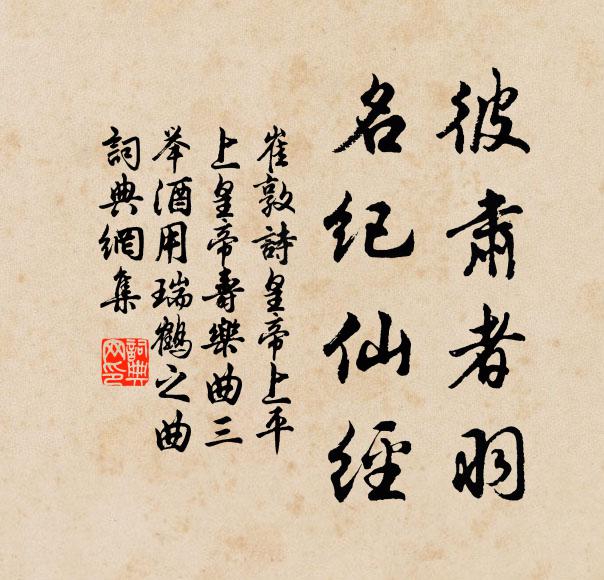 彼肅者羽
名紀仙經
崔敦詩皇帝上平
上皇帝壽樂曲三
举酒用瑞鶴之曲
詞典網集
詞典網印